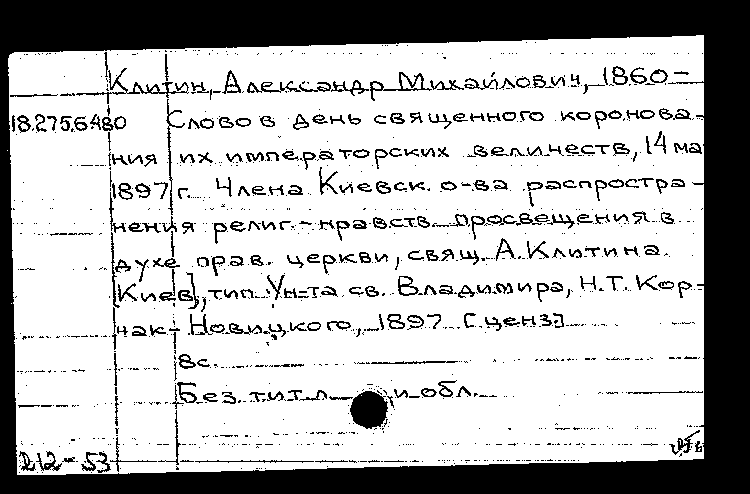 Клитин, Александр Михайлович, 1860-
18.275.6.480 Слово в день священного коронова-
ния их императорских величеств, 14 ма
1897 г. Члена Киевск. о-ва распростра-
нения религ.-нравств. просвещения в
духе прав. церкви, свящ. А. Клитина.
[Киев], тип. Ун-та св. Владимира, Н.Т. Кор-
чак-Новицкого, 1897 [ценз.]
8с.
Без тит. л. и обл.
212-53